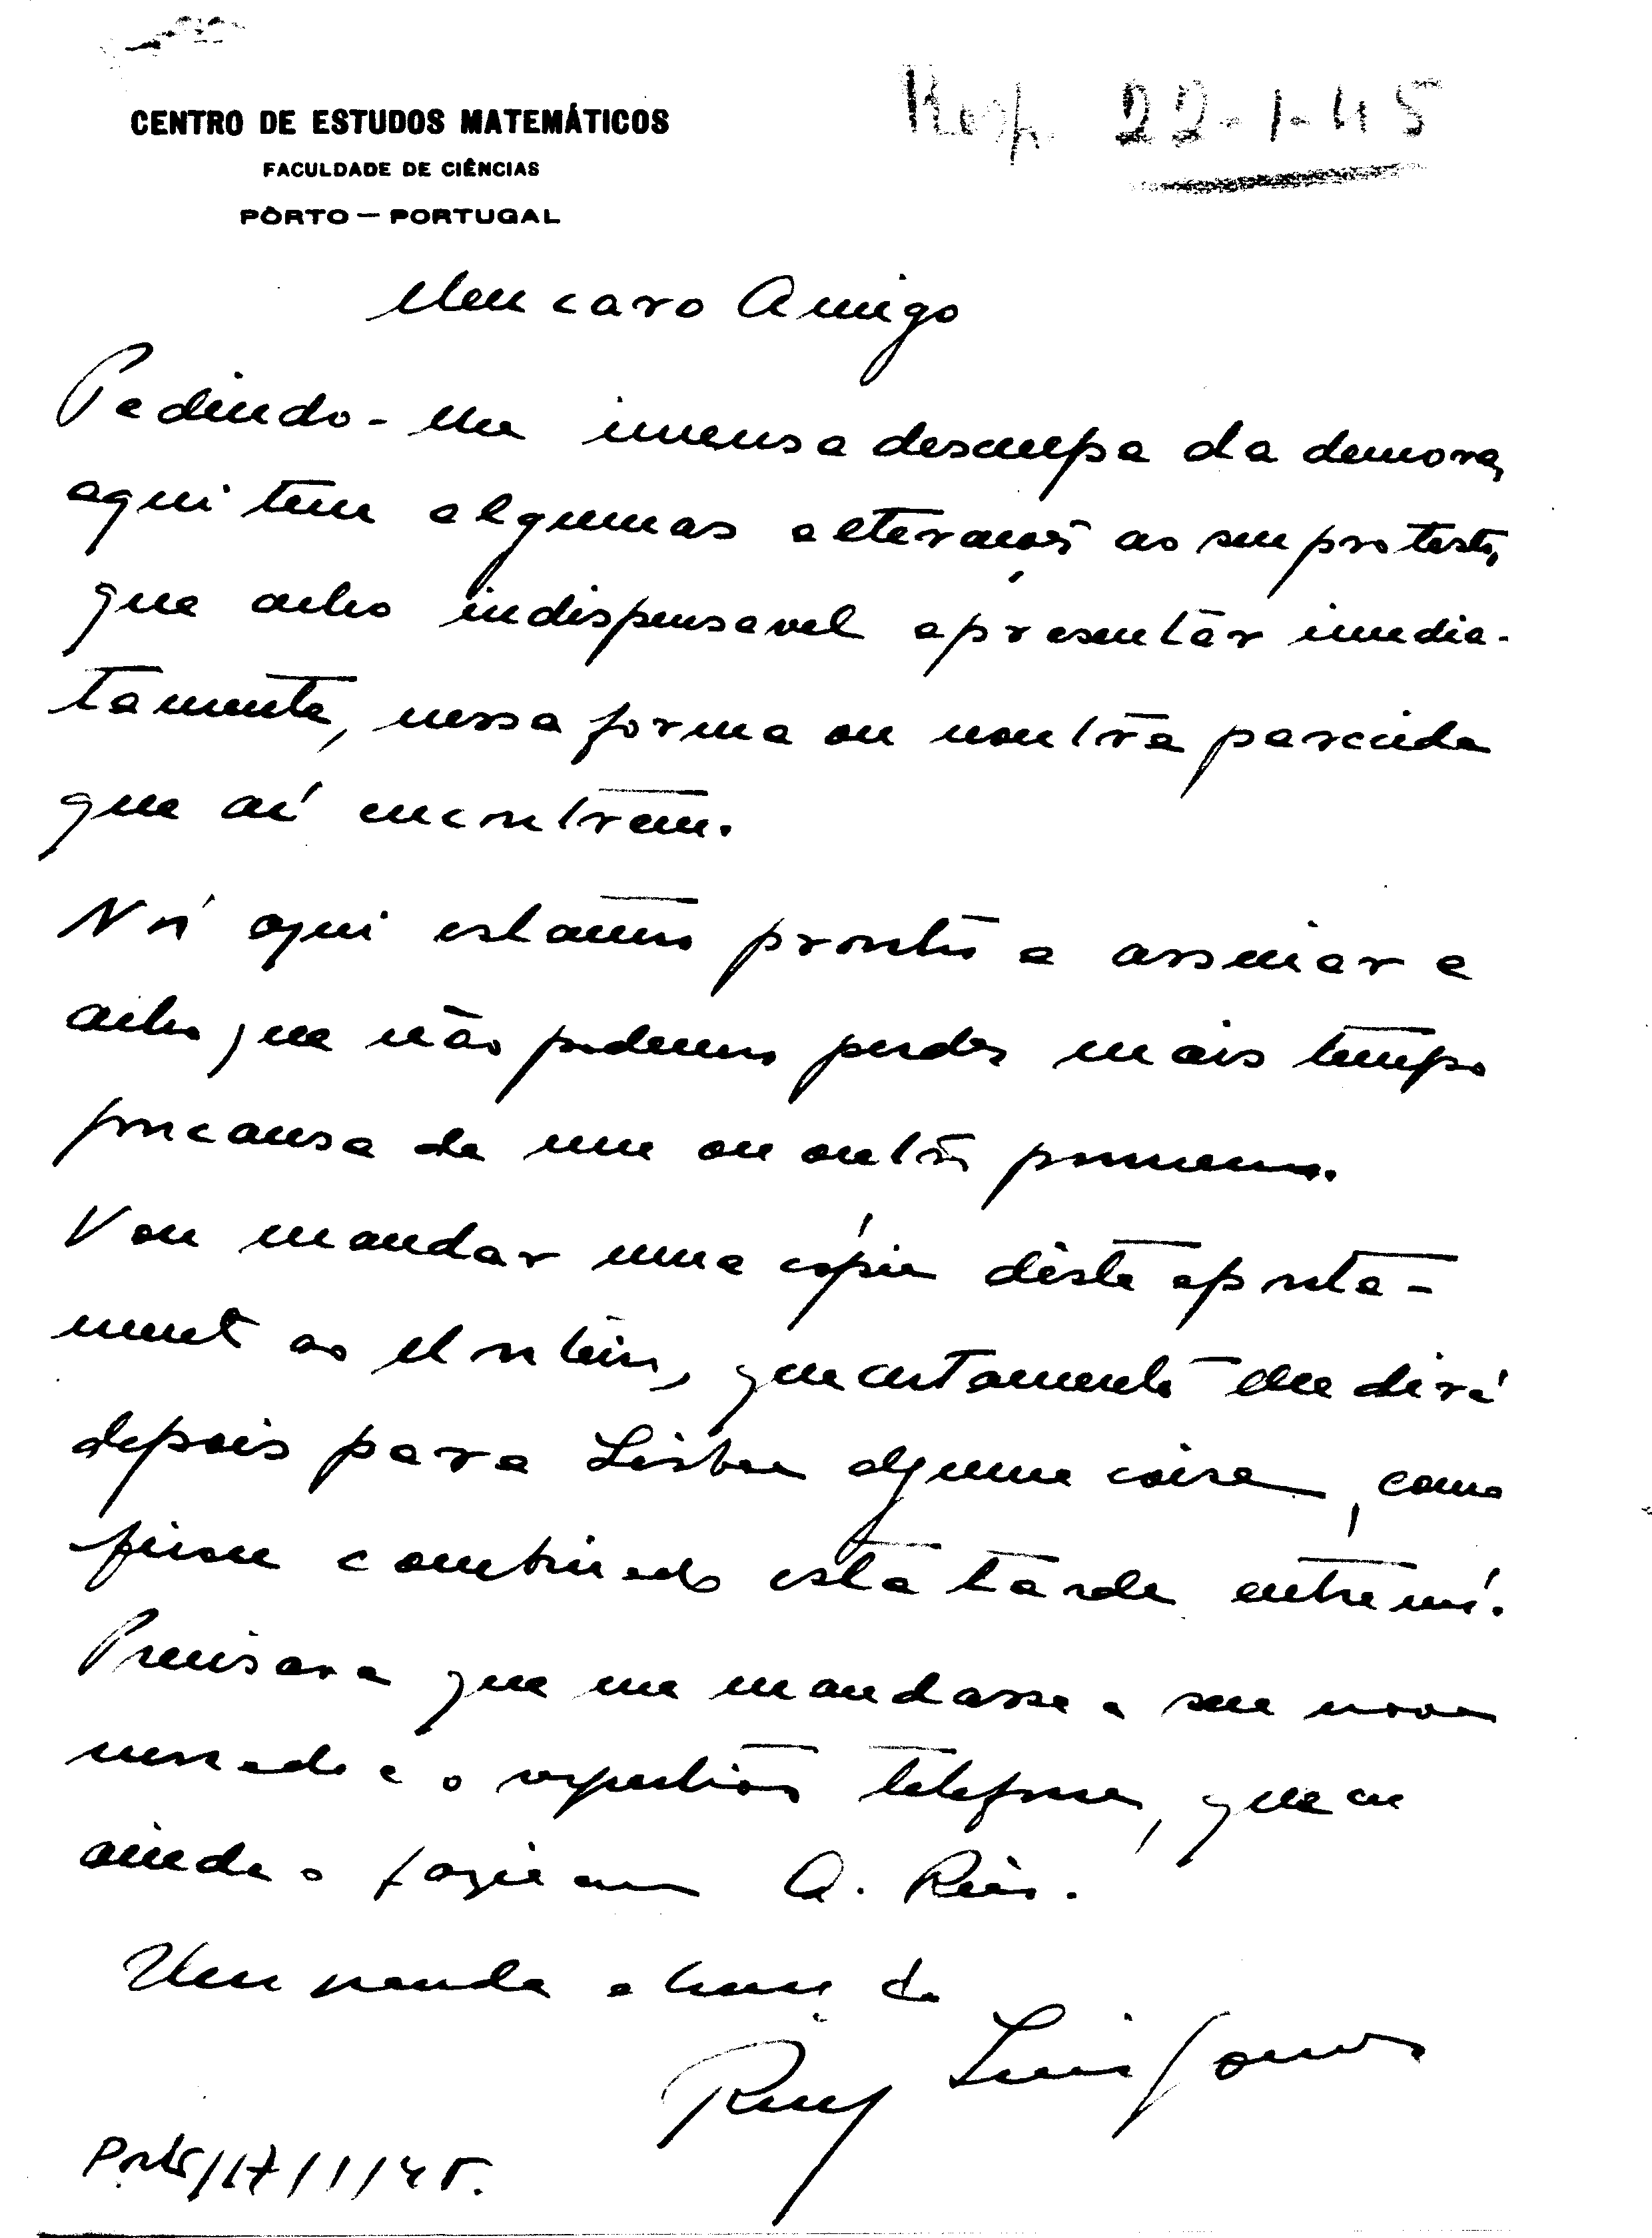 CENTRO DE ESTUDOS MATEMÁTICOS
FACULDADE DE CIÊNCIAS
PÔRTO — PORTUGAL
Resp. 22-1-45
Meu caro Amigo
Pedindo-lhe imensa desculpa da demora,
aqui tem algumas alterações ao seu protesto,
que acho indispensavel apresentar imedia-
tamente, nessa forma ou noutra parecida
que aí encontrem.
Nós aqui estamos prontos a assinar e
acho que não podemos perder mais tempo
por causa de um ou outro pormenor.
Vou mandar uma cópia dêste aponta-
mento ao Monteiro, que certamente lhe dirá
depois para Lisboa alguma coisa, como
ficou combinado esta tarde entre nós.
Precisava que me mandasse a sua nova
morada e o respectivo telefone, que eu
ainda o fazia em A. Reis.
Um grande abraço do
Ruy Luis Gomes
Porto/17/1/45.